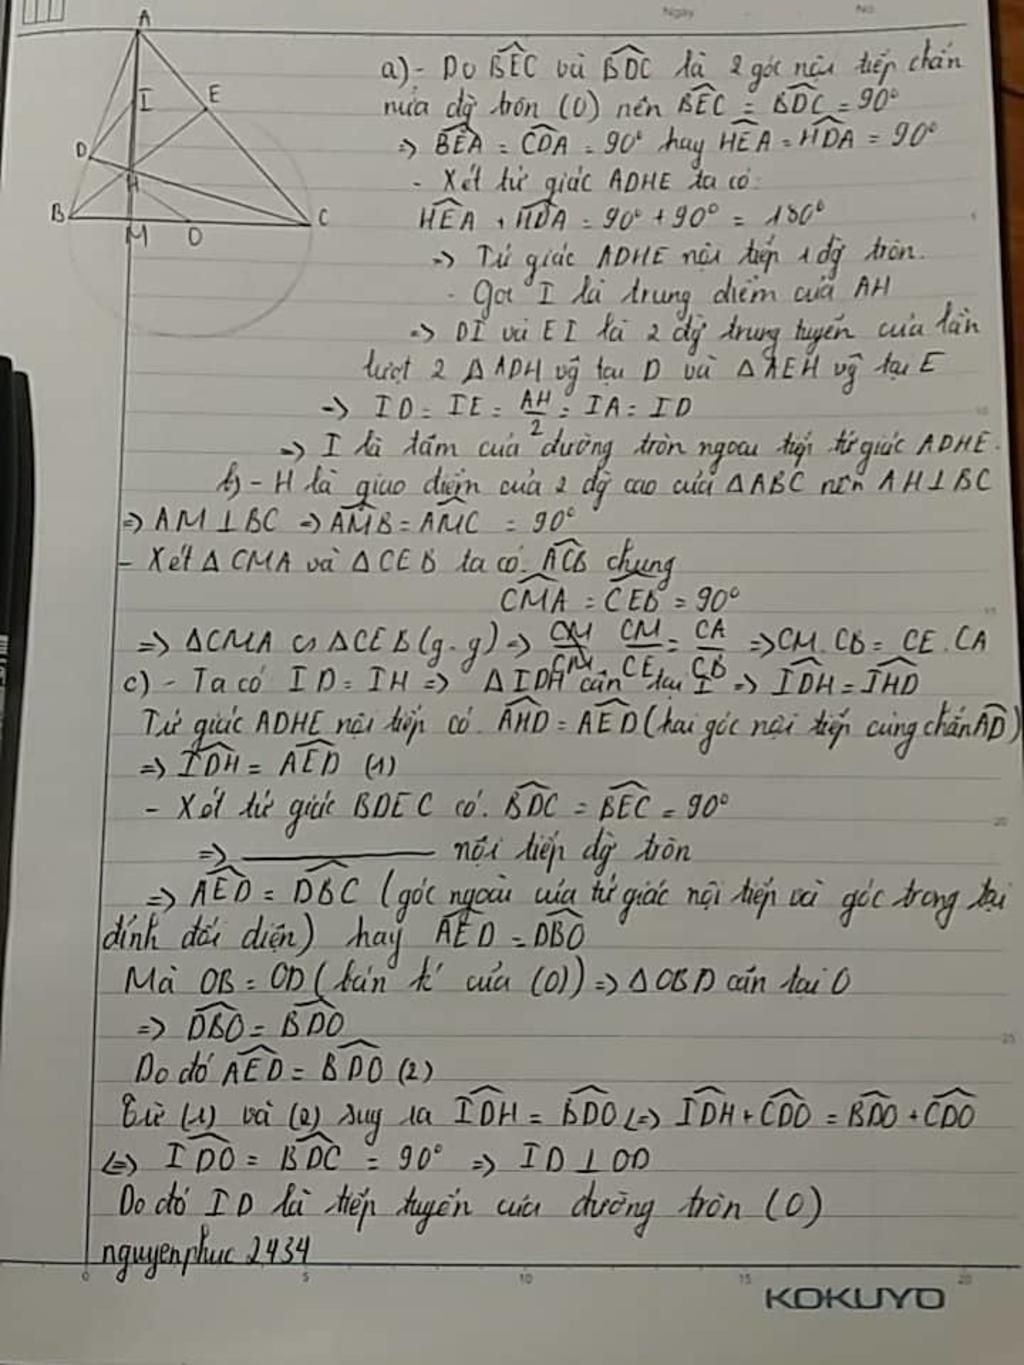 Ngày No.
A
I
E
D
H
B
C
M
O
a) - Do BEC và BDC là 2 góc nội tiếp chắn
nửa đg̀ tròn (O) nên BEC = BDC = 90°
=> BEA = CDA = 90° hay HEA = HDA = 90°
- Xét tứ giác ADHE ta có:
HEA + HDA = 90° + 90° = 180°
=> Tứ giác ADHE nội tiếp 1 đg̀ tròn.
- Gọi I là trung điểm của AH
=> DI và EI là 2 đg̀ trung tuyến của lần
lượt 2 Δ ADH vg̃ tại D và Δ AEH vg̃ tại E
=> ID = IE = AH/2 = IA = ID
=> I là tâm của đường tròn ngoại tiếp tứ giác ADHE.
b) - H là giao điểm của 2 đg̀ cao của ΔABC nên AH⊥BC
=> AM⊥BC => AMB = AMC = 90°
- Xét Δ CMA và Δ CEB ta có: ACB chung
CMA = CEB = 90°
=> ΔCMA ∽ ΔCEB (g.g) => CM/CE = CA/CB => CM.CB = CE.CA
c) - Ta có ID = IH => ΔIDH cân tại I => IDH = IHD
Tứ giác ADHE nội tiếp có: AHD = AED (hai góc nội tiếp cùng chắn AD)
=> IDH = AED (1)
- Xét tứ giác BDEC có: BDC = BEC = 90°
=> ———— nội tiếp đg̀ tròn
=> AED = DBC (góc ngoài của tứ giác nội tiếp và góc trong tại
đỉnh đối diện) hay AED = DBO
Mà OB = OD (bán kí của (O)) => Δ OBD cân tại O
=> DBO = BDO
Do đó AED = BDO (2)
Từ (1) và (2) suy ra IDH = BDO <=> IDH + CDO = BDO + CDO
<=> IDO = BDC = 90° => ID⊥OD
Do đó ID là tiếp tuyến của đường tròn (O)
nguyenphuc2434
0 5 10 15 20
KOKUYO